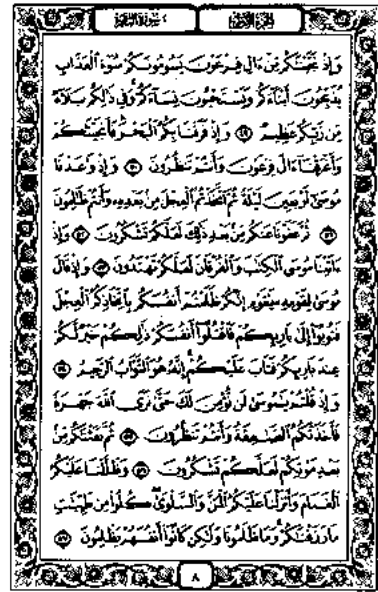 الجزء الأول
سورة البقرة
وَإِذْ نَجَّيْنَاكُم مِّنْ ءَالِ فِرْعَوْنَ يَسُومُونَكُمْ سُوٓءَ ٱلْعَذَابِ
يُذَبِّحُونَ أَبْنَآءَكُمْ وَيَسْتَحْيُونَ نِسَآءَكُمْ وَفِى ذَٰلِكُم بَلَآءٌ
مِّن رَّبِّكُمْ عَظِيمٌ ٤٩ وَإِذْ فَرَقْنَا بِكُمُ ٱلْبَحْرَ فَأَنجَيْنَٰكُمْ
وَأَغْرَقْنَآ ءَالَ فِرْعَوْنَ وَأَنتُمْ تَنظُرُونَ ٥٠ وَإِذْ وَٰعَدْنَا
مُوسَىٰٓ أَرْبَعِينَ لَيْلَةً ثُمَّ ٱتَّخَذْتُمُ ٱلْعِجْلَ مِنۢ بَعْدِهِۦ وَأَنتُمْ ظَٰلِمُونَ
٥١ ثُمَّ عَفَوْنَا عَنكُم مِّنۢ بَعْدِ ذَٰلِكَ لَعَلَّكُمْ تَشْكُرُونَ ٥٢ وَإِذْ
ءَاتَيْنَا مُوسَى ٱلْكِتَٰبَ وَٱلْفُرْقَانَ لَعَلَّكُمْ تَهْتَدُونَ ٥٣ وَإِذْ قَالَ
مُوسَىٰ لِقَوْمِهِۦ يَٰقَوْمِ إِنَّكُمْ ظَلَمْتُمْ أَنفُسَكُم بِٱتِّخَاذِكُمُ ٱلْعِجْلَ
فَتُوبُوٓا۟ إِلَىٰ بَارِئِكُمْ فَٱقْتُلُوٓا۟ أَنفُسَكُمْ ذَٰلِكُمْ خَيْرٌ لَّكُمْ
عِندَ بَارِئِكُمْ فَتَابَ عَلَيْكُمْ إِنَّهُۥ هُوَ ٱلتَّوَّابُ ٱلرَّحِيمُ ٥٤
وَإِذْ قُلْتُمْ يَٰمُوسَىٰ لَن نُّؤْمِنَ لَكَ حَتَّىٰ نَرَى ٱللَّهَ جَهْرَةً
فَأَخَذَتْكُمُ ٱلصَّٰعِقَةُ وَأَنتُمْ تَنظُرُونَ ٥٥ ثُمَّ بَعَثْنَٰكُم مِّنۢ
بَعْدِ مَوْتِكُمْ لَعَلَّكُمْ تَشْكُرُونَ ٥٦ وَظَلَّلْنَا عَلَيْكُمُ
ٱلْغَمَامَ وَأَنزَلْنَا عَلَيْكُمُ ٱلْمَنَّ وَٱلسَّلْوَىٰ كُلُوا۟ مِن طَيِّبَٰتِ
مَا رَزَقْنَٰكُمْ وَمَا ظَلَمُونَا وَلَٰكِن كَانُوٓا۟ أَنفُسَهُمْ يَظْلِمُونَ ٥٧
٨